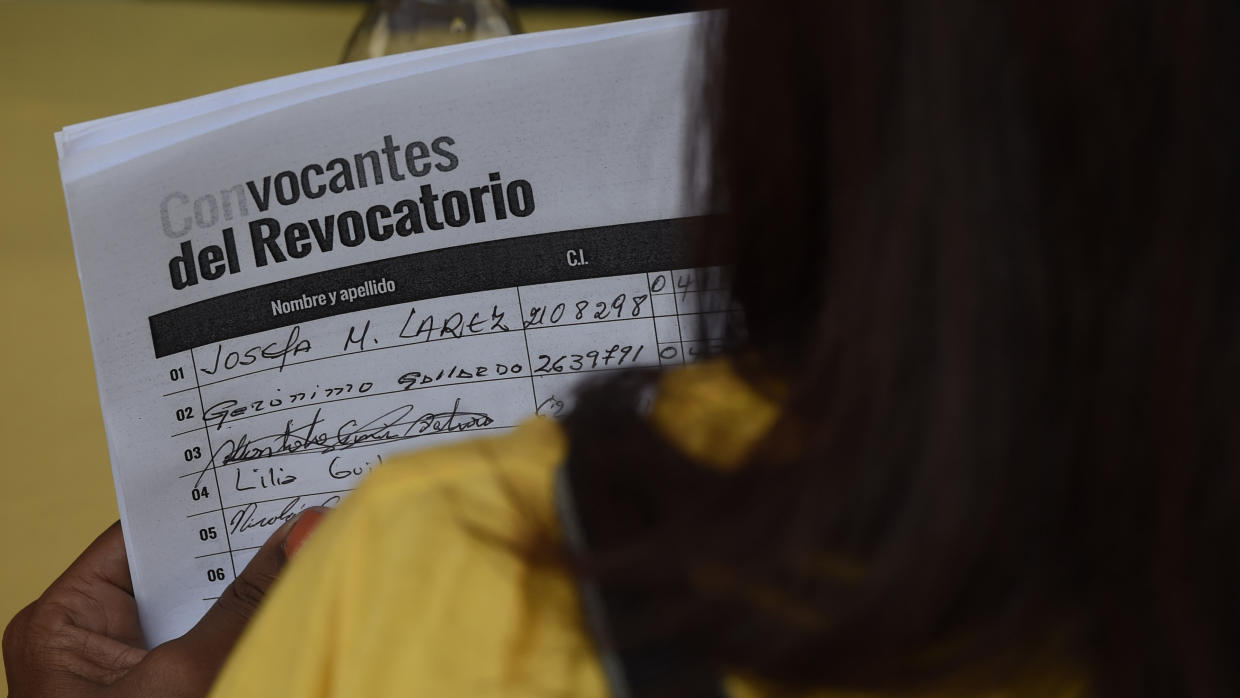 Convocantes
del Revocatorio
Nombre y apellido C.I.
01 JOSEFA M. LAREZ 2108298 04
02 Geronimo Gallardo 2639791 0
03
04 Lilia
05 Nicolás
06